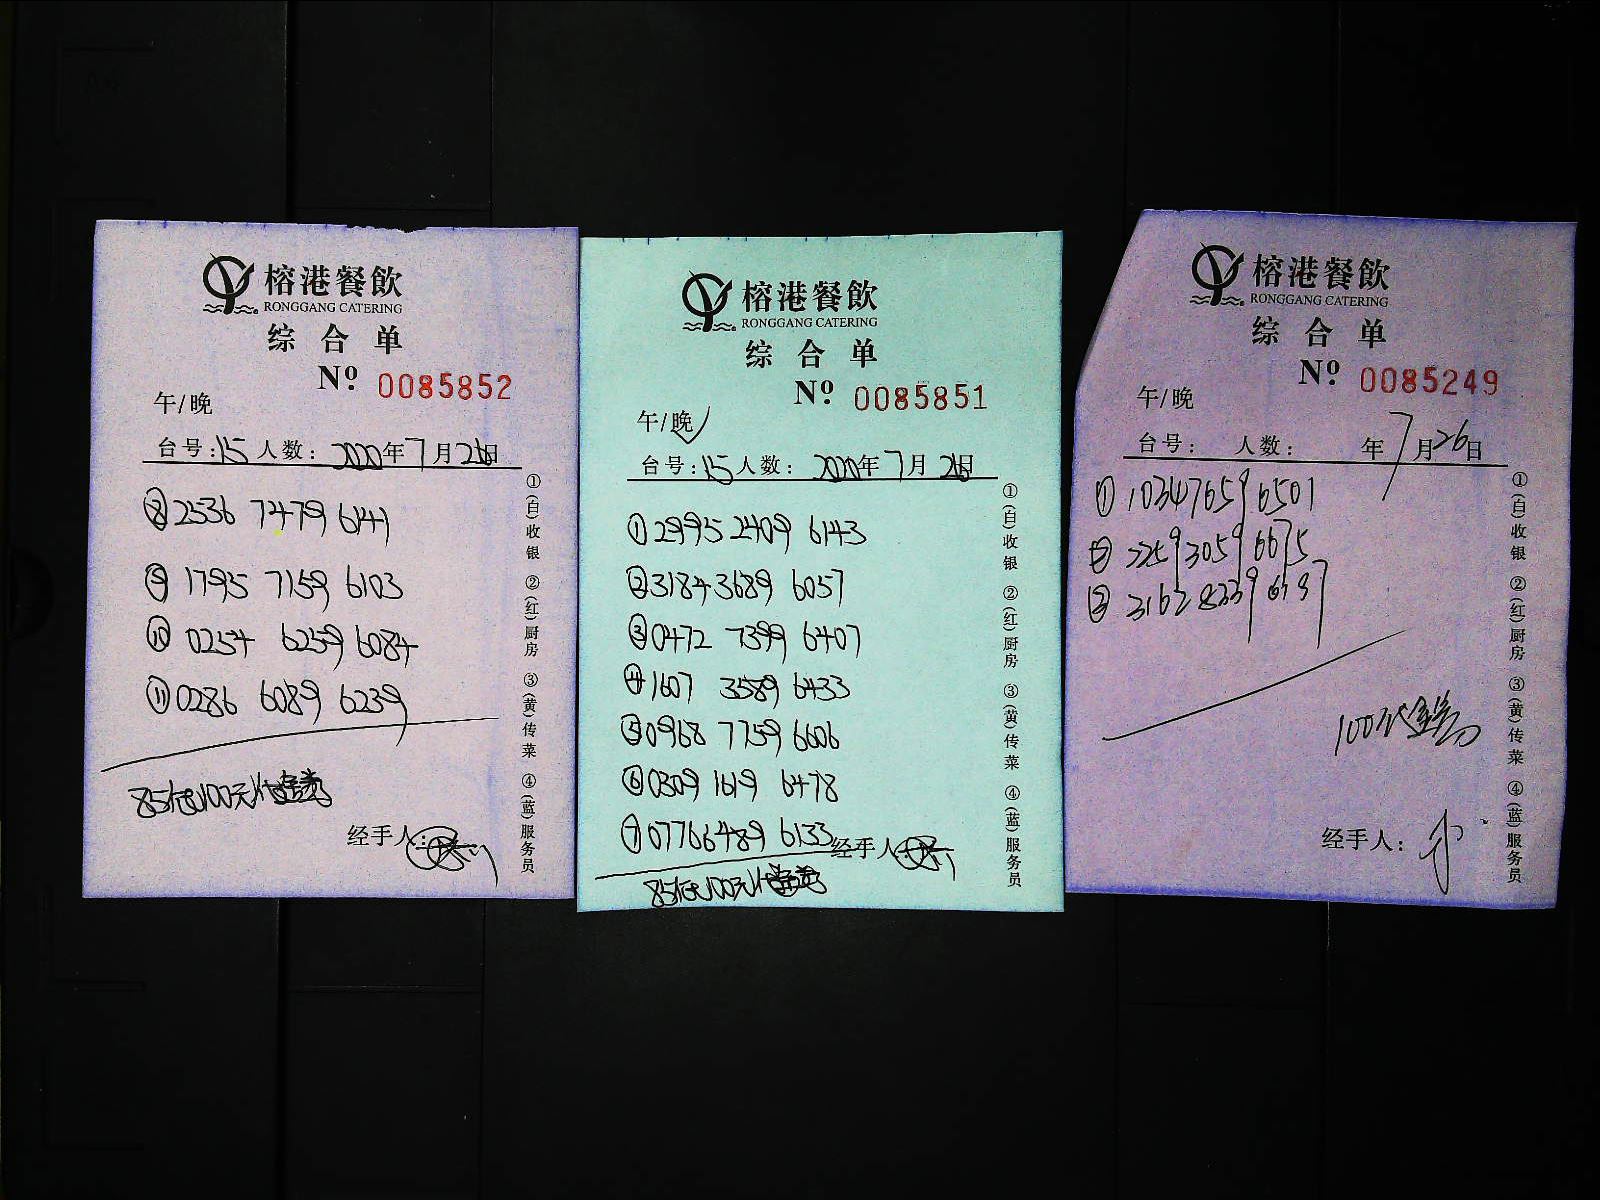 榕港餐飲
RONGGANG CATERING
综合单
Nº 0085852
午/晚
台号:15 人数: 2020年7月26日
⑧2536 7479 6141
⑨ 1795 7159 6103
⑩ 0254 6259 6084
⑪0286 6089 6239
85抵100元代金券
经手人:
①(白)收银 ②(红)厨房 ③(黄)传菜 ④(蓝)服务员
榕港餐飲
RONGGANG CATERING
综合单
Nº 0085851
午/晚
台号:15 人数: 2020年7月26日
①2995 2409 6143
②3184 3689 6057
③0472 7399 6407
④1607 3589 6433
⑤0968 7759 6606
⑥0309 1619 6478
⑦0776 6489 6133
经手人:
85抵100元代金券
①(白)收银 ②(红)厨房 ③(黄)传菜 ④(蓝)服务员
榕港餐飲
RONGGANG CATERING
综合单
Nº 0085249
午/晚
台号: 人数: 年7月26日
① 1034 7659 6501
② 2259 3059 6675
③ 3162 8339 6197
100代金券
经手人:
①(白)收银 ②(红)厨房 ③(黄)传菜 ④(蓝)服务员